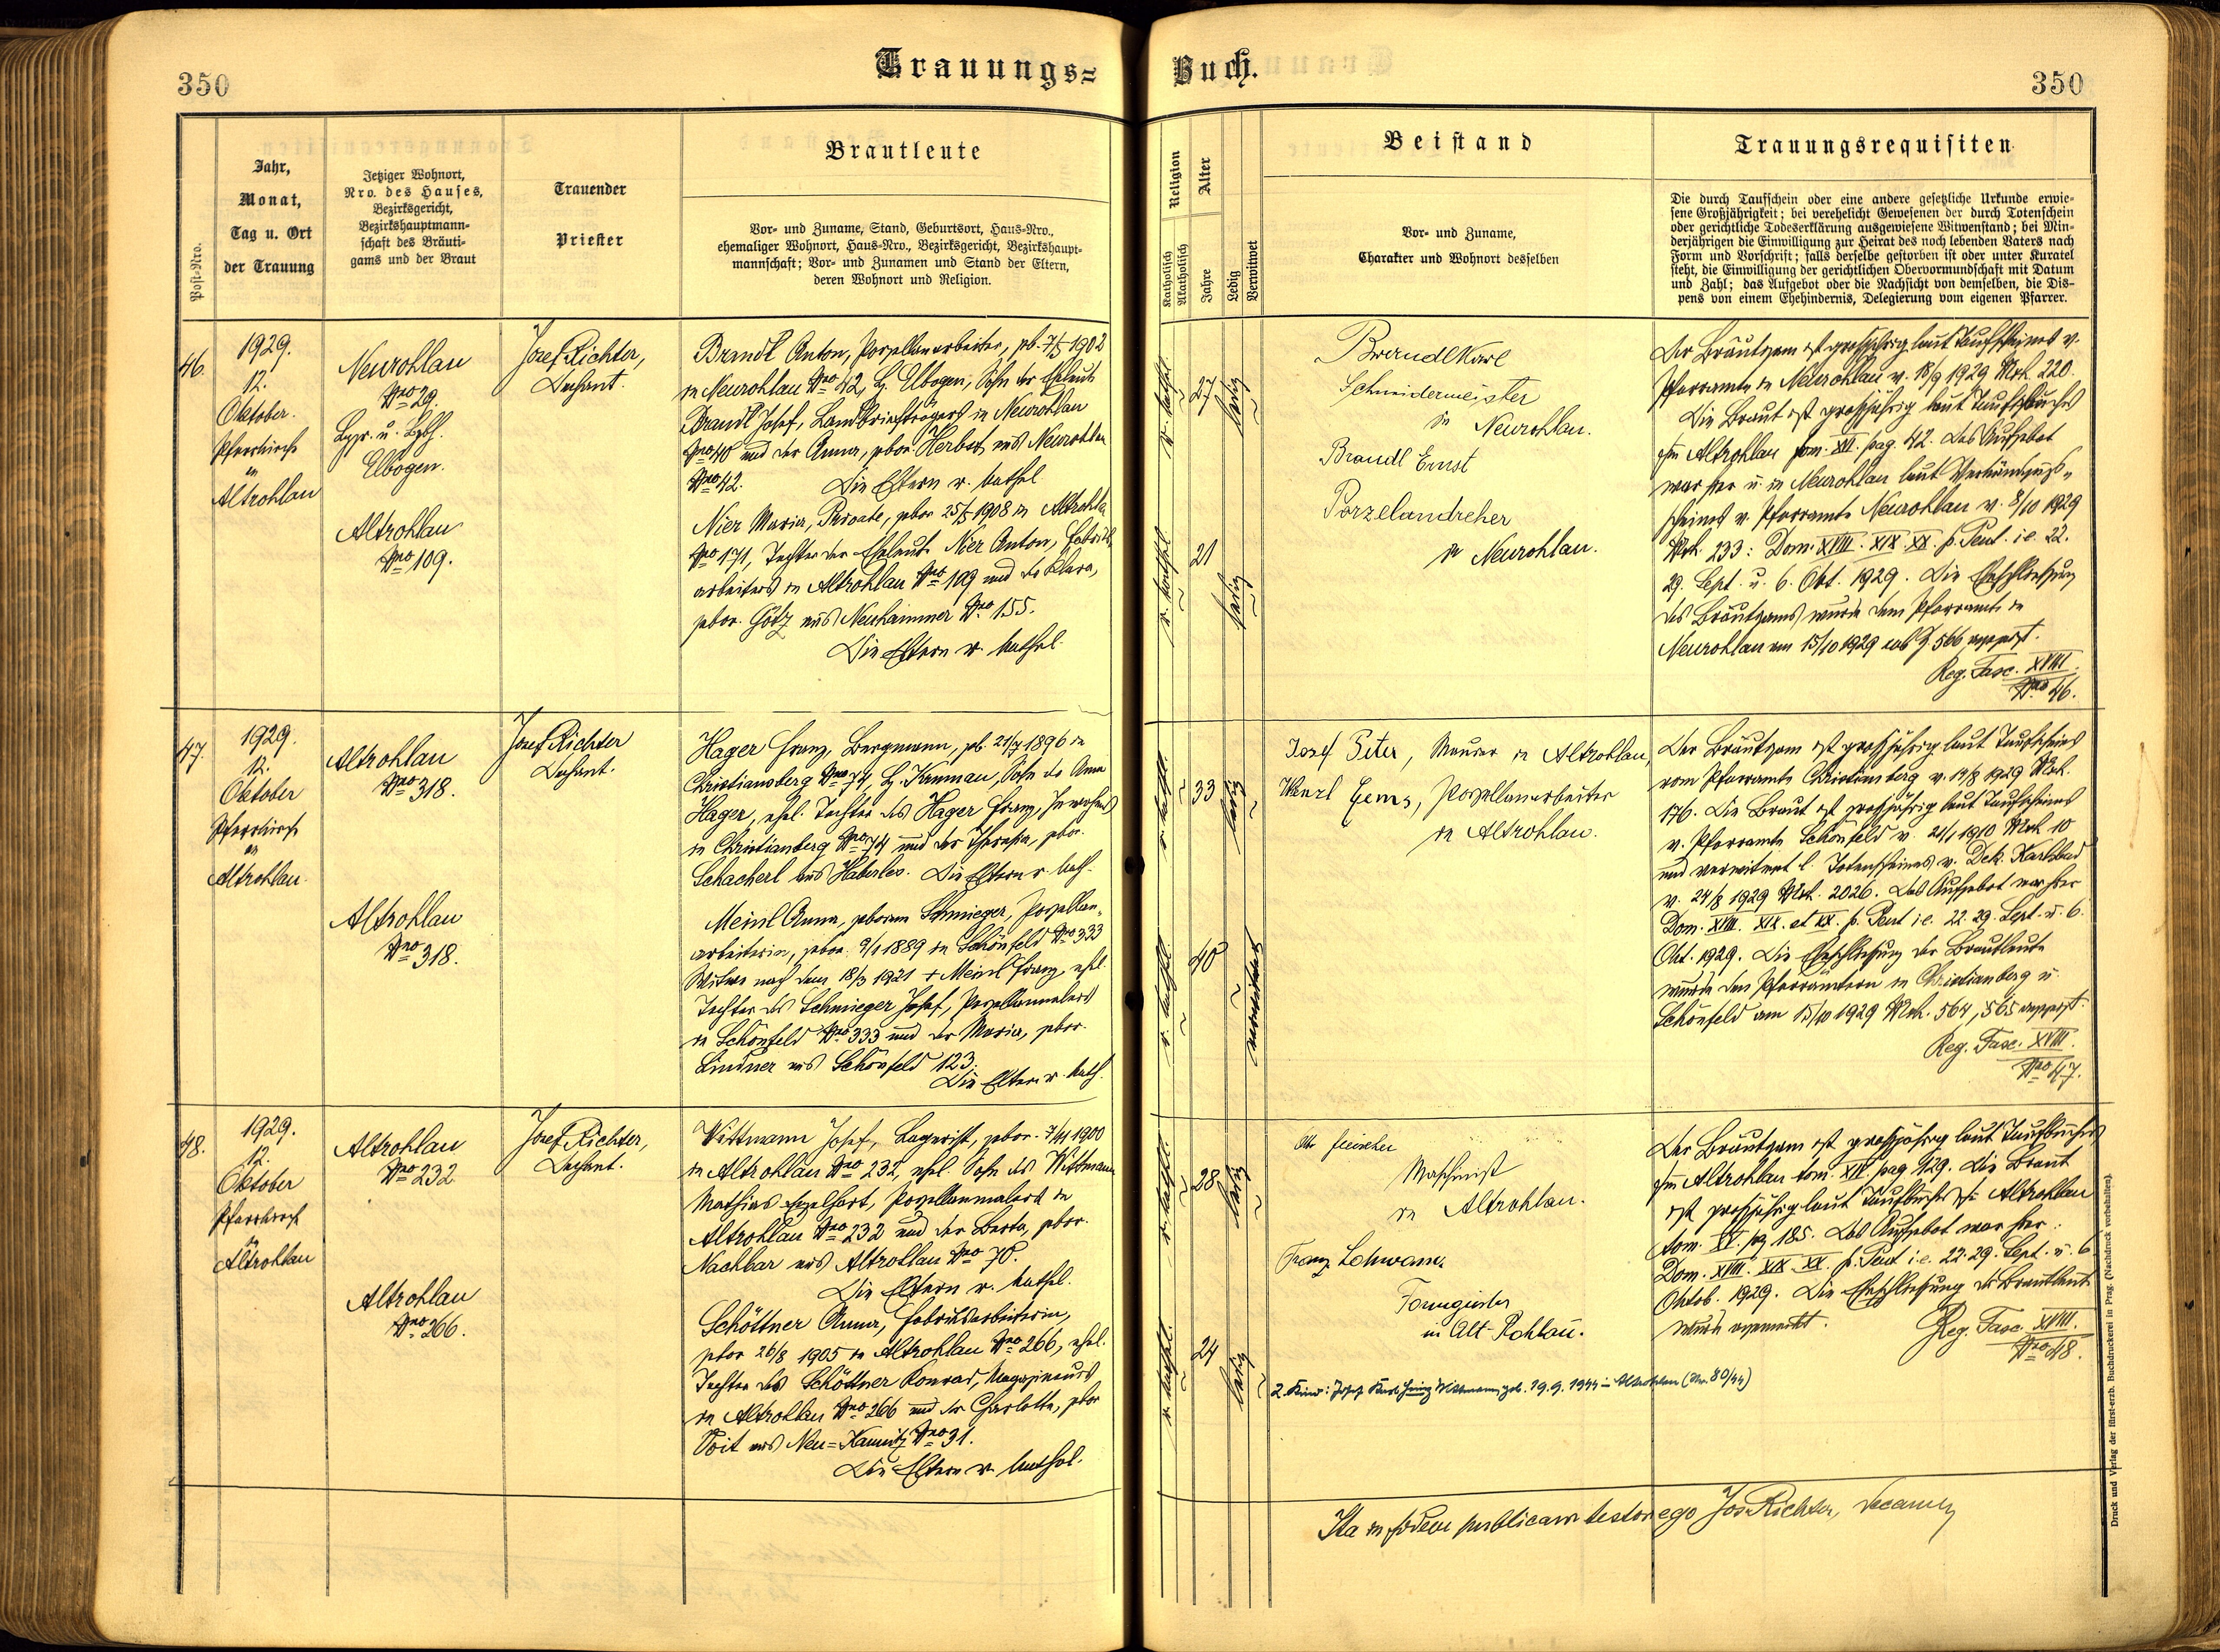 350
Trauungs=
Buch.
350
Post-Nro.
Jahr,
Monat,
Tag u. Ort
der Trauung
Jetziger Wohnort,
Nro. des Hauses,
Bezirksgericht,
Bezirkshauptmann-
schaft des Bräuti-
gams und der Braut
Trauender
Priester
Brautleute
Vor- und Zuname, Stand, Geburtsort, Haus-Nro.,
ehemaliger Wohnort, Haus-Nro., Bezirksgericht, Bezirkshaupt-
mannschaft; Vor- und Zunamen und Stand der Eltern,
deren Wohnort und Religion.
Religion
Katholisch
Akatholisch
Alter
Jahre
Ledig
Verwitwet
Beistand
Vor- und Zuname,
Charakter und Wohnort desselben
Trauungsrequisiten
Die durch Taufschein oder eine andere gesetzliche Urkunde erwie-
sene Großjährigkeit; bei verehelicht Gewesenen der durch Totenschein
oder gerichtliche Todeserklärung ausgewiesene Witwenstand; bei Min-
derjährigen die Einwilligung zur Heirat des noch lebenden Vaters nach
Form und Vorschrift; falls derselbe gestorben ist oder unter Kuratel
steht, die Einwilligung der gerichtlichen Obervormundschaft mit Datum
und Zahl; das Aufgebot oder die Nachsicht von demselben, die Dis-
pens von einem Ehehindernis, Delegierung vom eigenen Pfarrer.
46.
1929.
12.
Oktober.
Pfarrkirche
in
Altrohlau
Neurohlau
Nro 29.
Elbogen.
Altrohlau
Nro 109.
Josef Richter,
Dechant.
Brandl Anton, Porzellanarbeiter, geb. 7/5 1902
in Neurohlau Nro 42, B. Elbogen, Sohn der Eheleute
Brandl Josef, Landbriefträgers in Neurohlau
Nro 40 und der Anna, gebor. Herbert aus Neurohlau
Nro 42. Die Eltern r. kathol.
Nier Maria, Private, gebor 25/5 1908 in Altrohlau
Nro 171, Tochter der Eheleute Nier Anton, Fabriks-
arbeiters in Altrohlau Nro 109 und der Klara,
gebor. Götz aus Neuhammer Nro 155.
Die Eltern r. kathol.
r. kathol.
27
ledig
r. kathol.
21
ledig
Brandl Karl
Schneidermeister
in Neurohlau.
Brandl Ernst
Porzelandreher
in Neurohlau.
Der Bräutigam ist großjährig laut Taufscheines v.
Pfarramte in Neurohlau v. 18/9 1929 Nrh. 220.
Die Braut ist großjährig laut Taufbuches
in Altrohlau tom. XVI. pag. 42. Das Aufgebot
war hier u. in Neurohlau laut Verkündungs-
scheines v. Pfarramte Neurohlau v. 8/10 1929
Nrh. 233: Dom. XVIII. XIX. XX. p. Pent. i.e. 22.
29. Sept. u. 6. Okt. 1929. Die Eheschließung
des Bräutigams wurde dem Pfarramte in
Neurohlau am 15/10 1929 sub Z. 566 angezeigt.
Reg. Fasc. XVIII.
Nro 46.
47.
1929.
12.
Oktober
Pfarrkirche
in
Altrohlau.
Altrohlau
Nro 318.
Altrohlau
Nro 318.
Josef Richter
Dechant.
Hager Franz, Bergmann, geb. 21/7 1896 in
Christiansberg Nro 74, B. Krumau, Sohn der Anna
Hager, ehel. Tochter des Hager Franz, Inwohners
in Christianberg Nro 74 und der Theresia, gebor.
Schacherl aus Haberles. Die Eltern r. kath.
Meinl Anna, geborene Schmieger, Porzellan-
arbeiterin, gebor. 9/1 1889 in Schönfeld Nro 333
Witwe nach dem 18/3 1921 + Meinl Franz, ehel.
Tochter des Schmieger Josef, Porzellanmalers
in Schönfeld Nro 333 und der Maria, gebor.
Lindner aus Schönfeld 123.
Die Eltern r. kath.
r. kathol.
33
ledig
r. kathol.
40
verwitwet
Josef Peter, Maurer in Altrohlau,
Wenzl Gems, Porzellanarbeiter
in Altrohlau.
Der Bräutigam ist großjährig laut Taufscheines
vom Pfarramte Christianberg v. 14/8 1929 Nrh.
176. Die Braut ist großjährig laut Taufscheines
v. Pfarramte Schönfeld v. 21/1 1910 Nrh 10
und verwitwet l. Totenscheines v. Dek. Karlsbad
v. 24/8 1929 Nrh. 2026. Das Aufgebot war hier
Dom. XVIII. XIX. et XX. p. Pent i.e. 22. 29. Sept. u. 6.
Okt. 1929. Die Eheschließung der Brautleute
wurde den Pfarrämtern in Christianberg u.
Schönfeld am 15/10 1929 Nrh. 564, 565 angezeigt.
Reg. Fasc. XVIII.
Nro 47.
48.
1929.
12.
Oktober
Pfarrkirche
in
Altrohlau
Altrohlau
Nro 232
Altrohlau
Nro 266.
Josef Richter,
Dechant.
Wittmann Josef, Lagerist, gebor. 7/11 1900
in Altrohlau Nro 232, ehel. Sohn des Wittmann
Mathias Engelhart, Porzellanmalers in
Altrohlau Nro 232 und der Berta, gebor.
Nachbar aus Altrohlau Nro 70.
Die Eltern r. kathol.
Schöttner Anna, Fabriksarbeiterin,
gebor 26/8 1905 in Altrohlau Nro 266, ehel.
Tochter des Schöttner Konrad, Magazineurs
in Altrohlau Nro 266 und der Charlotte, gebor
Voit aus Neu=Kaunitz Nro 31.
Die Eltern r. kathol.
r. kathol.
28
ledig
r. kathol.
24
ledig
Otto Fleischer
Maschinist
in Altrohlau.
Franz
Formgießer
in Alt-Rohlau.
2. Kind: Josef Karl Heinz Wittmann, geb. 19.9.1944 in Altrohlau (Nr. 80/44)
Der Bräutigam ist großjährig laut Taufbuches
in Altrohlau tom. XIV pag 129. Die Braut
ist großjährig laut Taufbuches in Altrohlau
tom. XV. pg 185. Das Aufgebot war hier:
Dom. XVIII. XIX. XX. p. Pent i.e. 22. 29. Sept. u. 6.
Oktob. 1929. Die Eheschließung der Brautleute
wurde angemerkt.
Reg. Fasc. XVIII.
Nro 48.
Ita in fidem publicam testor ego Jos Richter, Decanus
Druck und Verlag der fürst-erzb. Buchdruckerei in Prag. (Nachdruck vorbehalten).